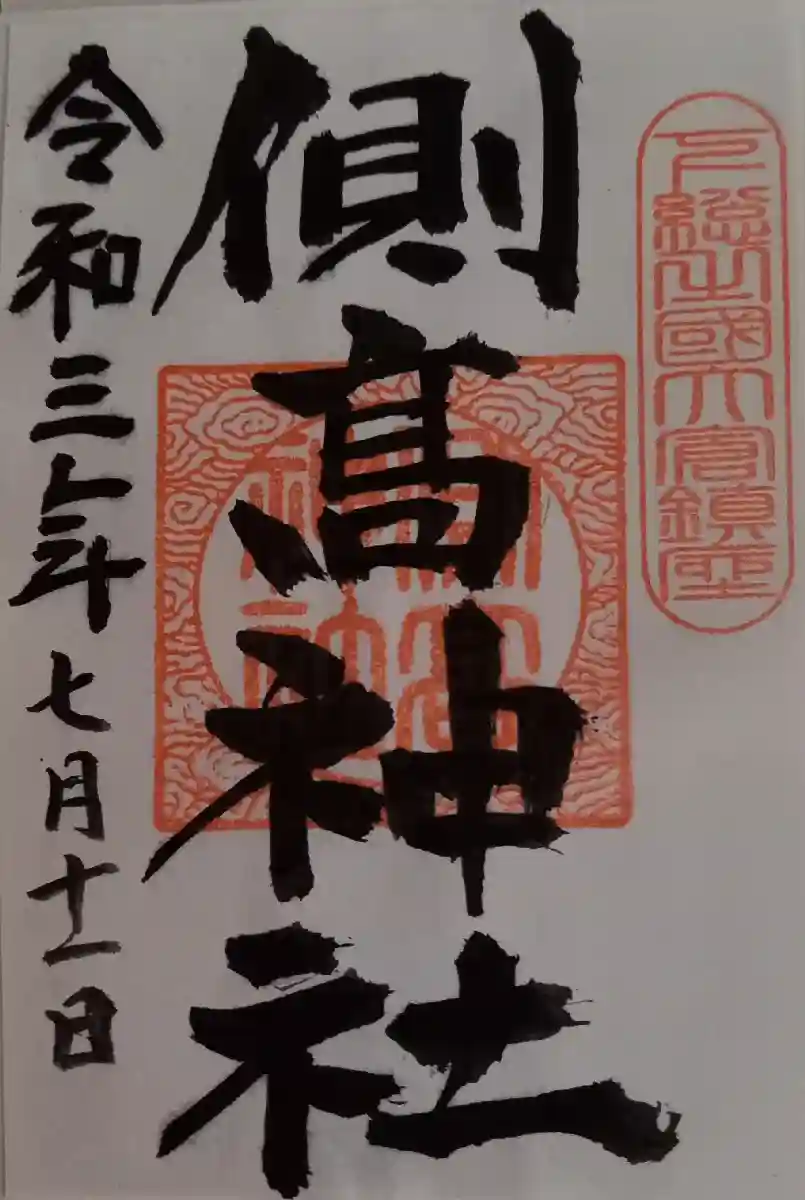 下総之國大倉鎮座
側髙神社
側高神社
令和三年七月十一日